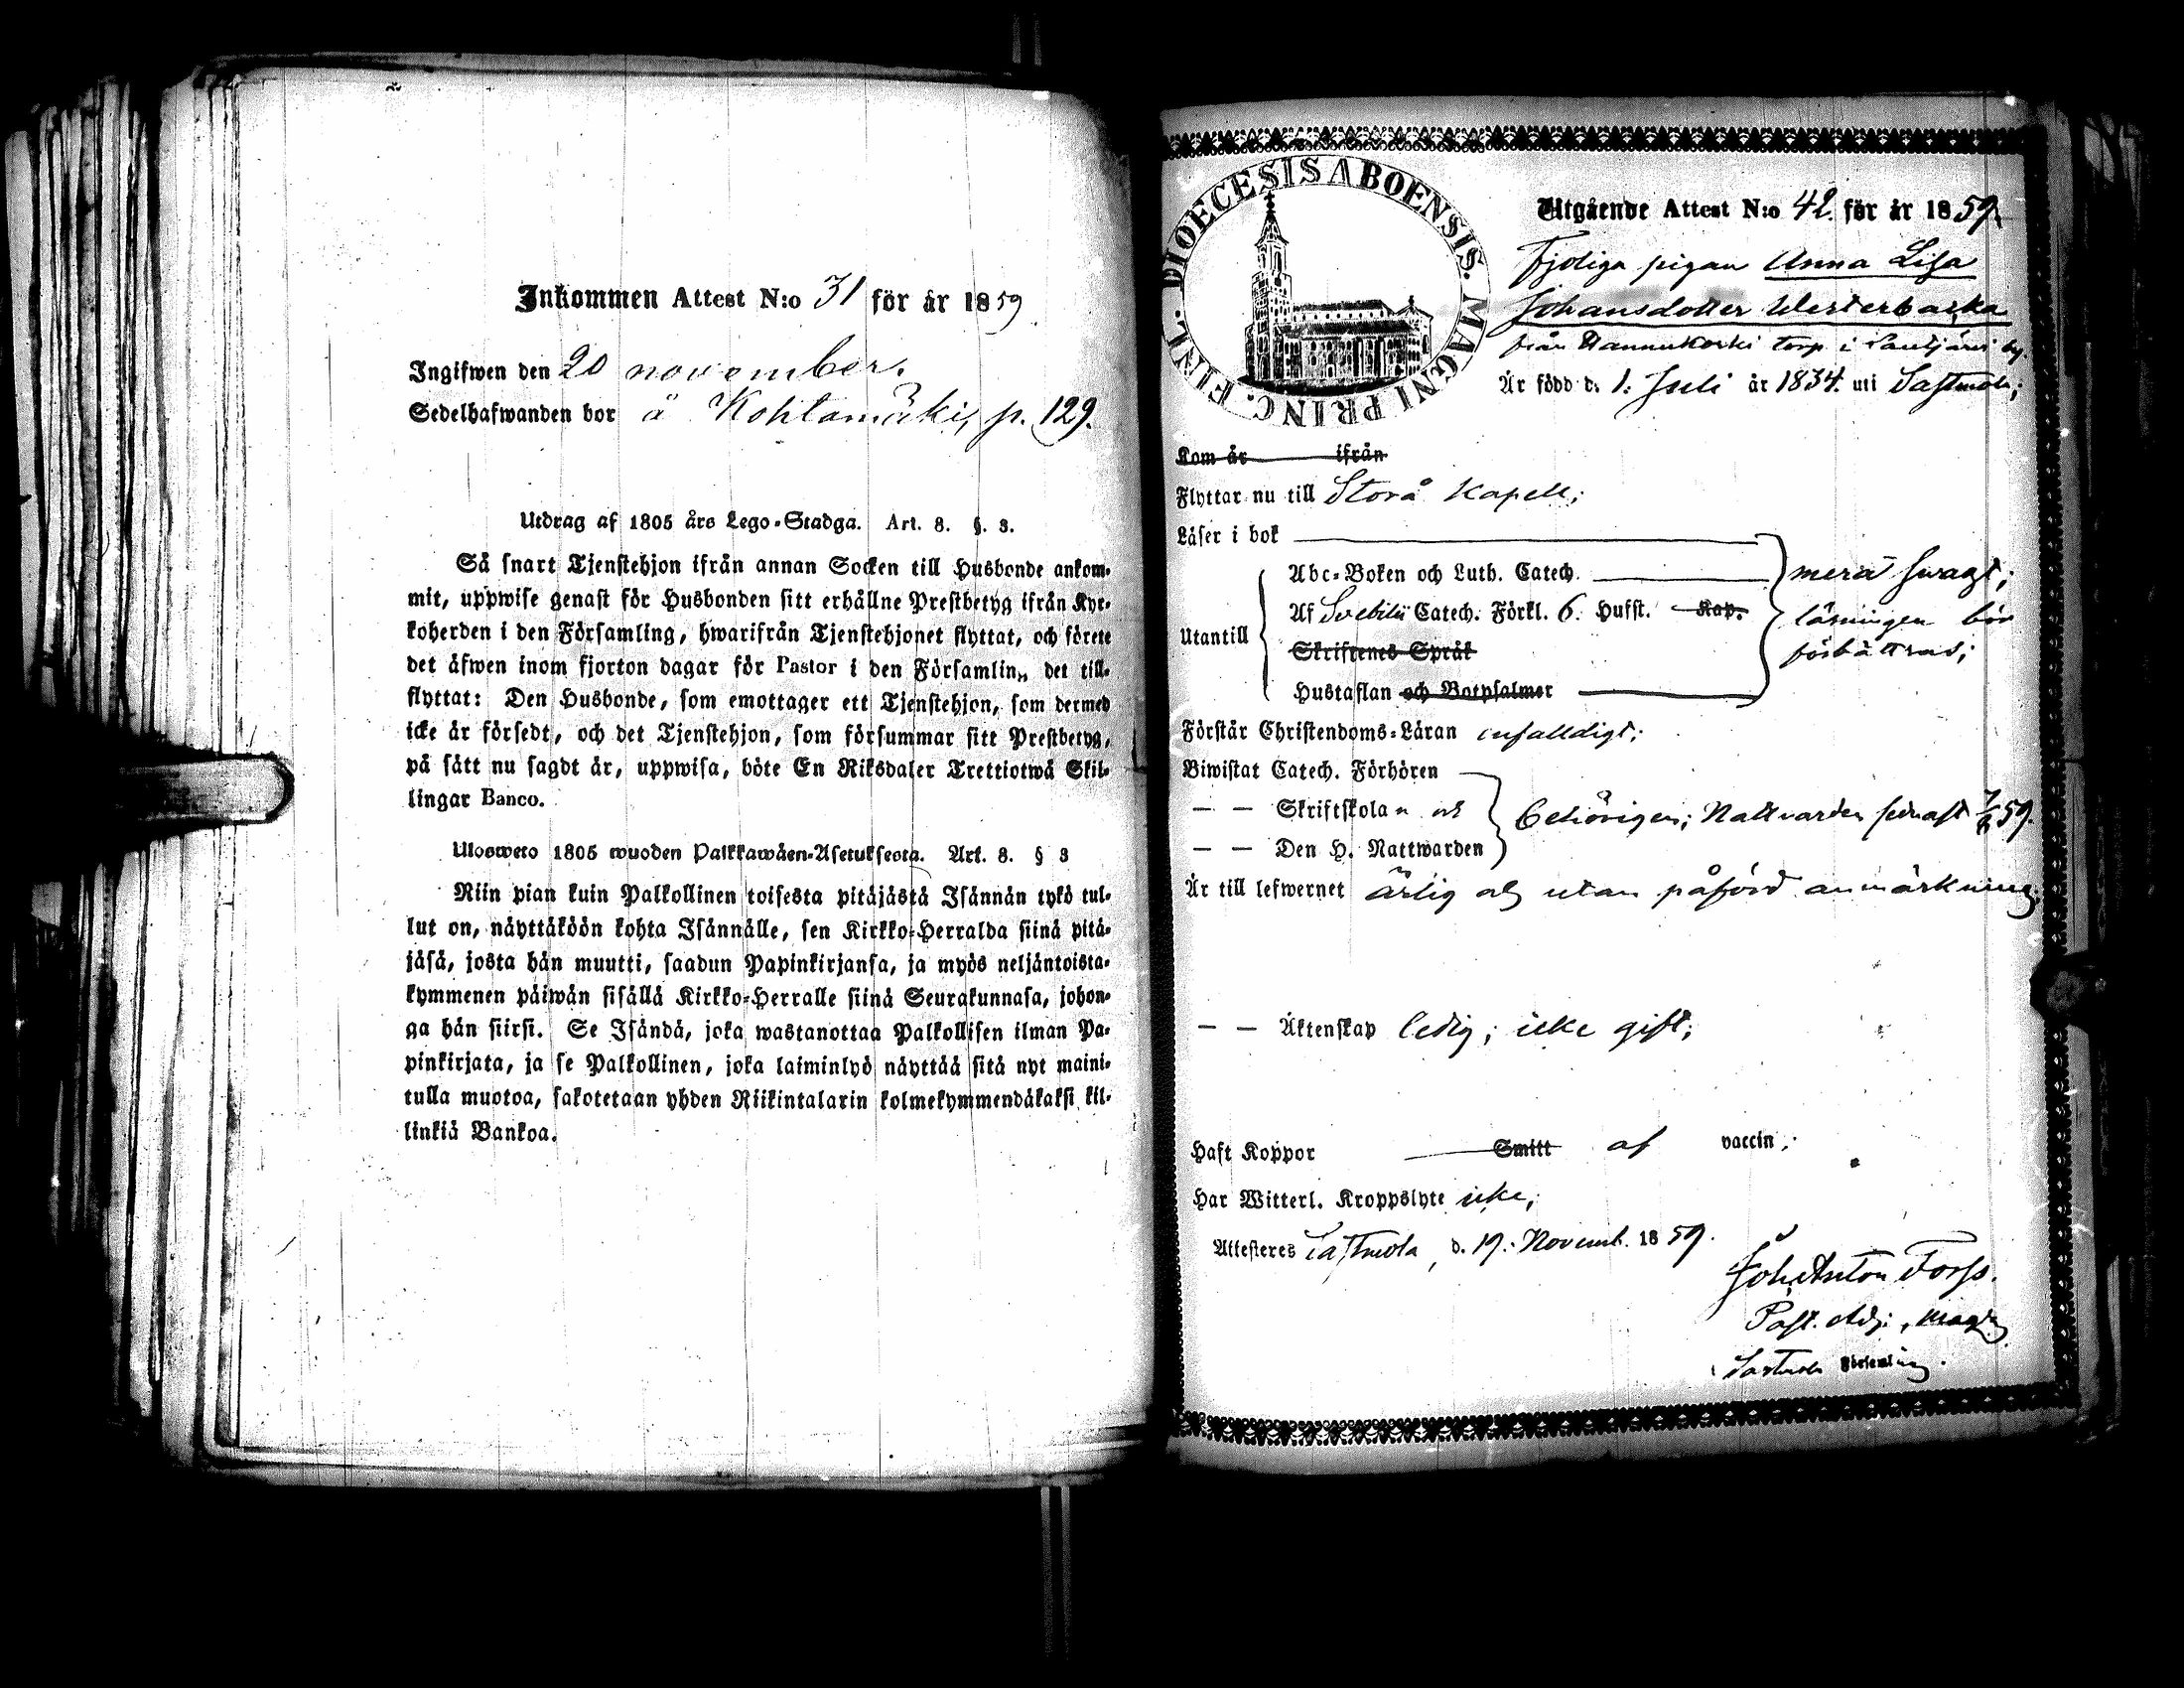 Inkommen Attest N:o 31 för år 1859
Ingifwen den 20 november.
Sedelhafwanden bor å Kohtamäki, p. 129.
Utdrag af 1805 års Lego-Stadga. Art. 8. §. 3.
Så snart Tjenstehjon ifrån annan Socken till Husbonde ankom-
mit, uppwise genast för Husbonden sitt erhållne Prestbetyg ifrån Kyr-
koherden i den Församling, hwarifrån Tjenstehjonet flyttat, och förete
det äfwen inom fjorton dagar för Pastor i den Församlin„ det till-
flyttat: Den Husbonde, som emottager ett Tjenstehjon, som dermed
icke är försedt, och det Tjenstehjon, som försummar sitt Prestbetyg,
på sätt nu sagdt är, uppwisa, böte En Riksdaler Trettiotwå Skil-
lingar Banco.
Ulosweto 1805 wuoden Palkkawäen-Asetuksesta. Art. 8. § 3
Niin pian kuin Palkollinen toisesta pitäjästä Isännän tykö tul-
lut on, näyttäköön kohta Isännälle, sen Kirkko-Herralda siinä pitä-
jäsä, josta hän muutti, saadun Papinkirjansa, ja myös neljäntoista-
kymmenen päiwän sisällä Kirkko-Herralle siinä Seurakunnasa, johon-
ga hän siirsi. Se Isändä, joka wastanottaa Palkollisen ilman Pa-
pinkirjata, ja se Palkollinen, joka laiminlyö näyttää sitä nyt maini-
tulla muotoa, sakotetaan yhden Riikintalarin kolmekymmendäkaksi kil-
linkiä Bankoa.
DIOECESIS ABOENSIS. MAGNI PRINC. FINL.
Utgående Attest N:o 42. för år 1859.
pigan Anna Lisa
Johansdotter Westerbacka
från Hannukoski torp i by
Är född d. 1. Juli år 1834. uti Sastmola;
Kom år ifrån
Flyttar nu till Storå Kapell;
Läser i bok
Abc-Boken och Luth. Catech.
Af Svebilii Catech. Förkl. 6. Hufst. Kap.
Utantill
Skriftenes Språk
Hustaflan och Botpsalmer
mera swagt;
läsningen bör
förbättras;
Förstår Christendoms-Läran enfalldigt;
Biwistat Catech. Förhören
— — Skriftskolan och
— — Den H. Nattwarden
behörigen; Nattvarden senast 7/8 59.
Är till lefwernet ärlig och utan påförd anmärkning;
— — Äktenskap ledig; icke gift;
Haft Koppor Smitt af vaccin;
Har Witterl. Kroppslyte icke;
Attesteras Sastmola, d. 19. Novemb. 1859.
Joh. Anton Forss.
Past. Adj.
Sastmola Församling.